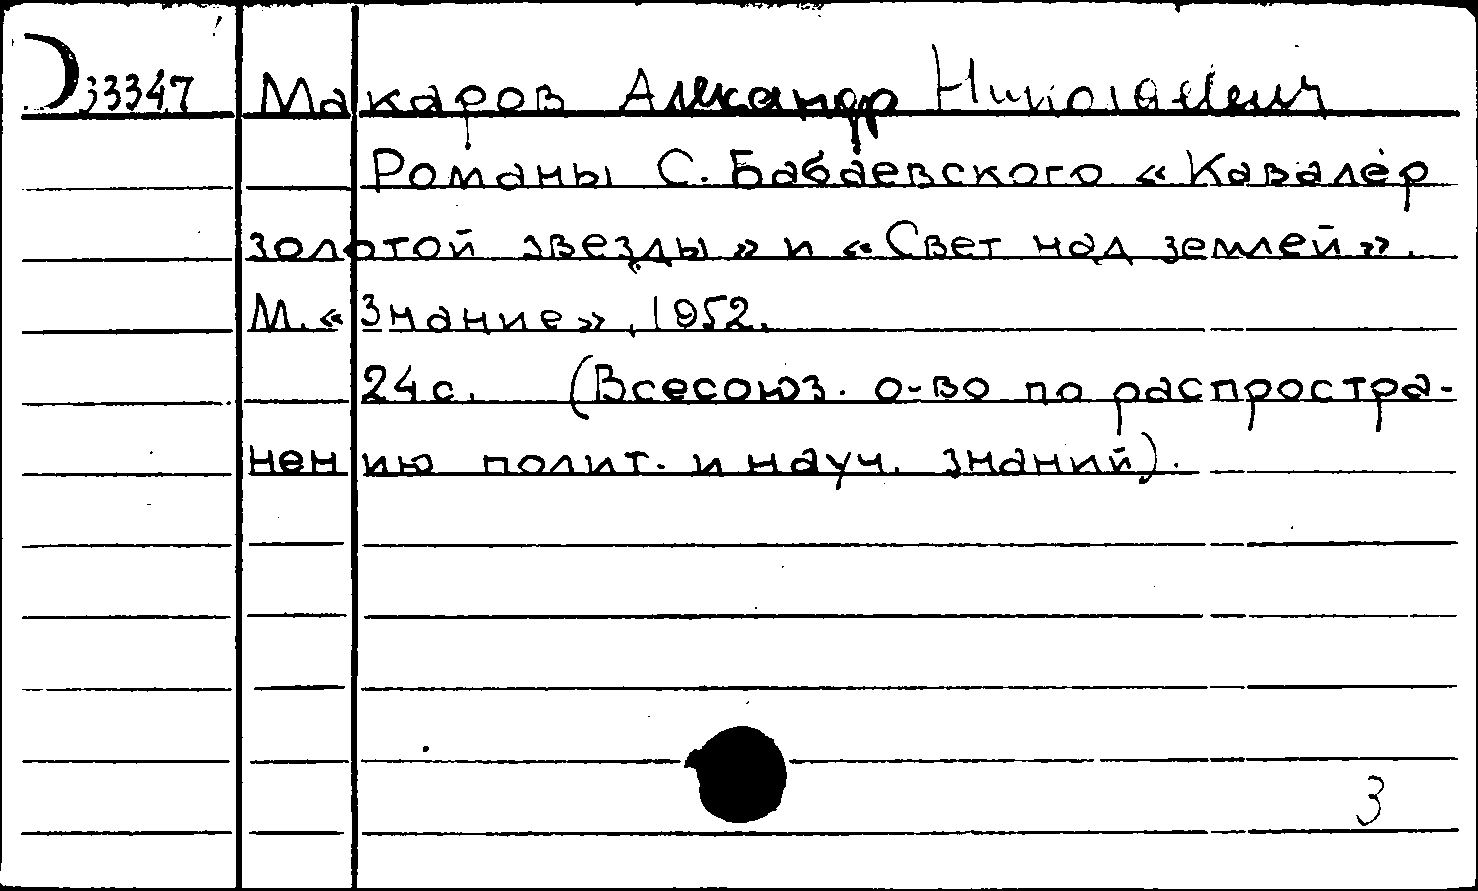 D33347 Макаров Александр Николаевич
Романы С. Бабаевского «Кавалер
золотой звезды» и «Свет над землей».
М. «Знание», 1952.
24 с. (Всесоюз. о-во по распростра-
нению полит. и науч. знаний).
3